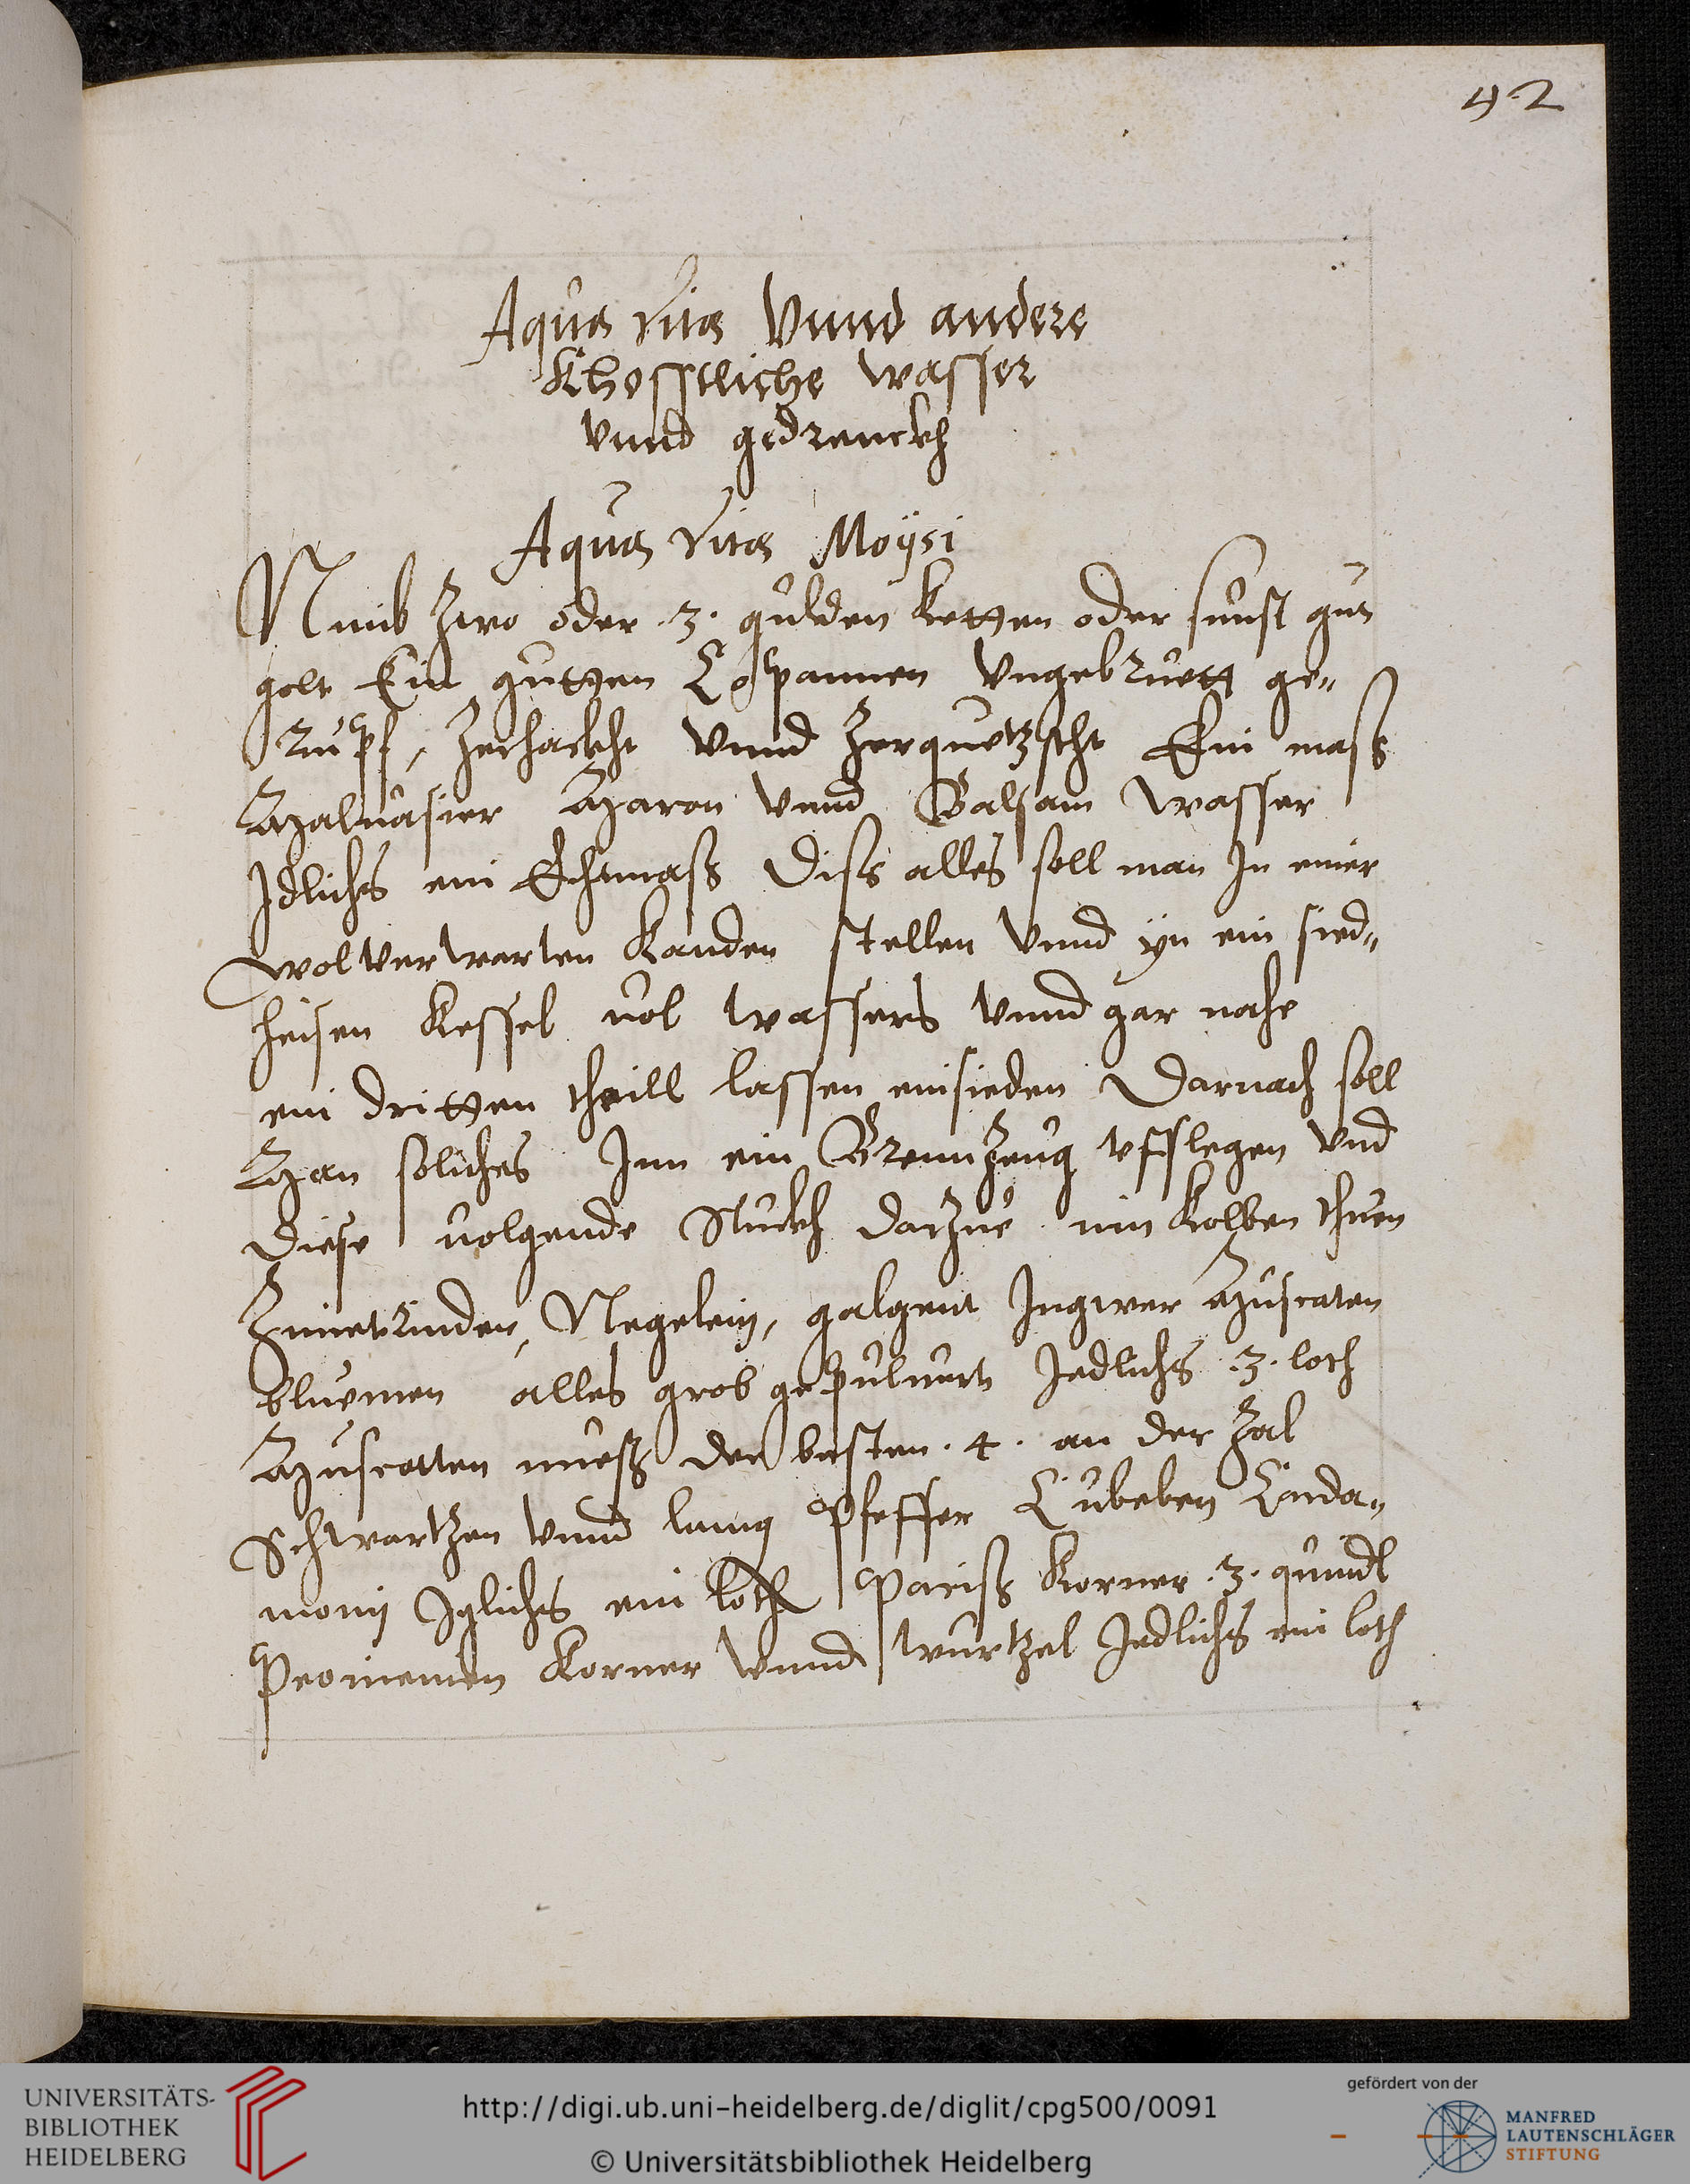 42
Aqua vitæ Vnnd andere
Khosstliche wasser
vnnd gedrenckh
Aqua vitæ Moÿsi
Nimb Zwo oder .3. gulden ketten oder sunst gut
golt Ein gutten Cospannen Vngebruett ge„
rupf, Zerhackht vnnd Zerquetzscht Ein mass
Maluasier Maron vnnd Balsam wasser
Jdlichs ein Echtmass Diss alles soll man In einer
wol verwarten kanden stellen vnnd ÿn ein sied„
heisen kessel vol wassers vnnd gar nahe
ein dritten theill lassen einsieden Darnach soll
Man soliches Jnn ein Brennzeug vfslegen vnd
diese volgende Stuckh darzue inn kolben thuen
Zimetrinden, Negelein, galgent Jngwer Muscaten
bluemen alles grob gepuluert Jedlichs .3. loth
Muscatten nuess der besten .4. an der Zal
Schwartzen vnnd lanng Pfeffer Cubeben Carda„
momÿ Jgliches ein loth Pariss korner .3. quindl
Peonienien korner vnnd wurtzel Jedlichs ein loth
UNIVERSITÄTS-
BIBLIOTHEK
HEIDELBERG
http://digi.ub.uni-heidelberg.de/diglit/cpg500/0091
© Universitätsbibliothek Heidelberg
gefördert von der
MANFRED
LAUTENSCHLÄGER
STIFTUNG